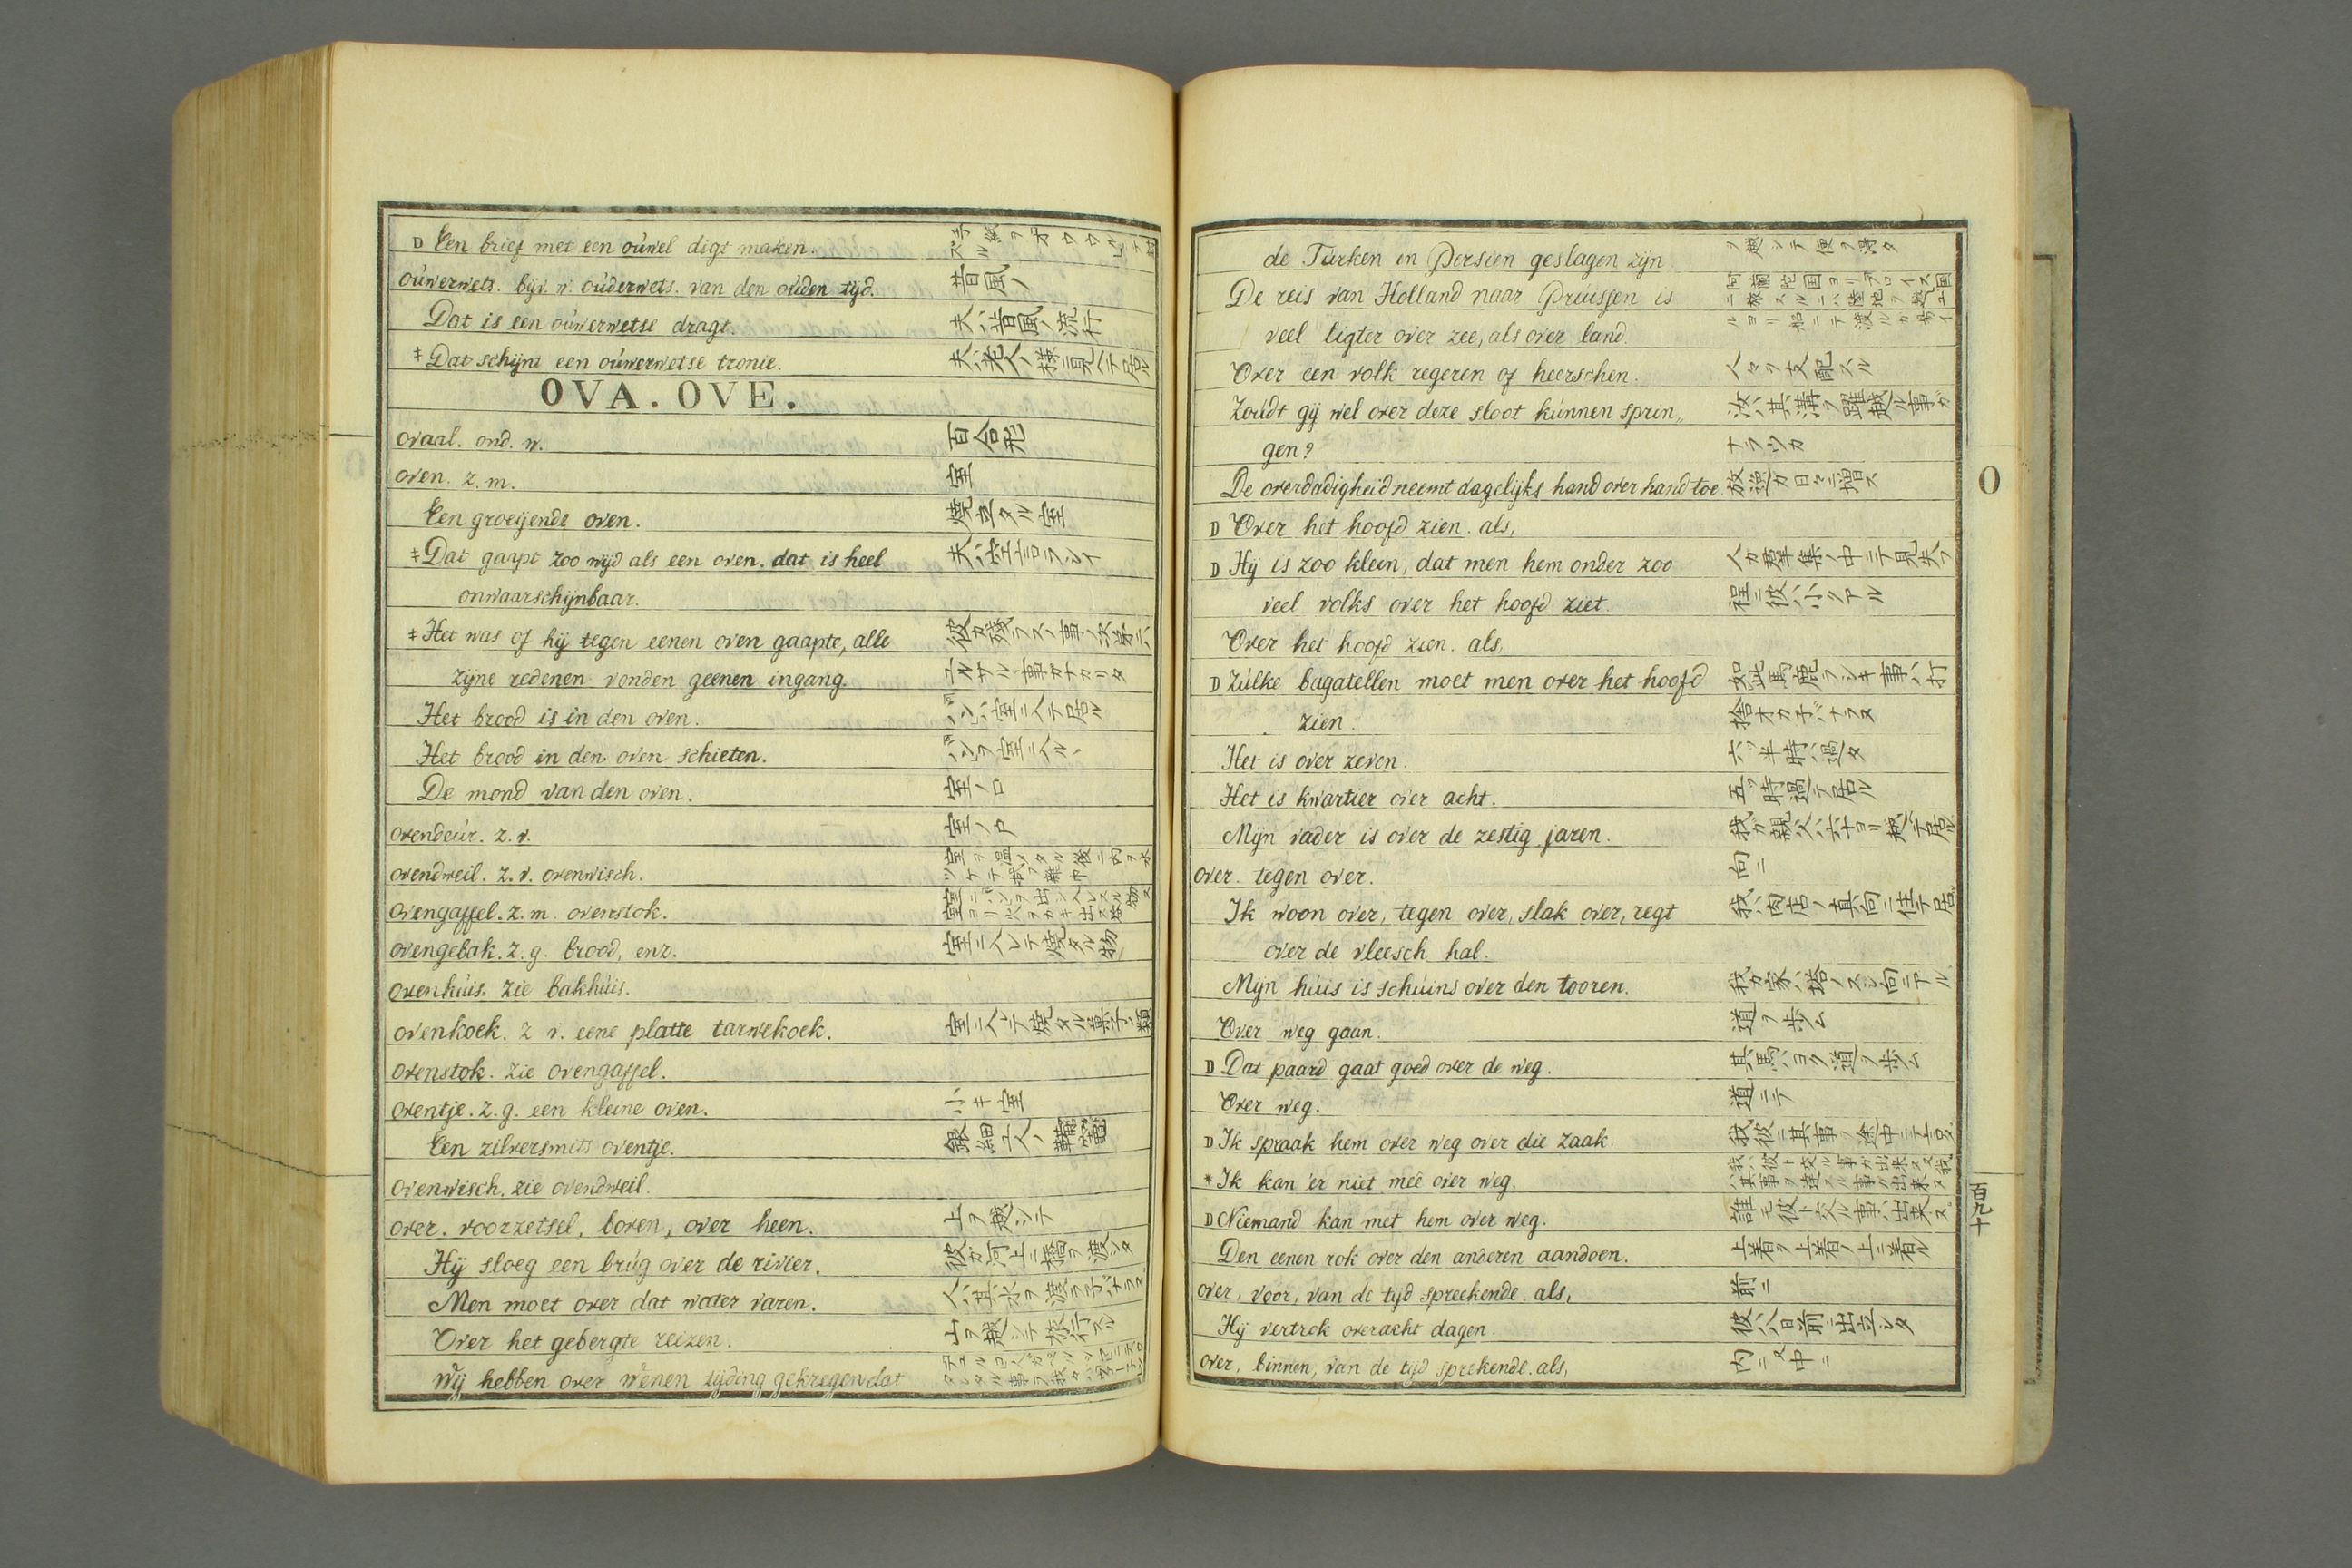 D Een brief met een oúwel digt maken.
oúwerwets. bijv. w. oúderwets. van den oúden tijd. 昔風ノ
Dat is een oúwerwetse dragt. 夫ハ昔風ノ流行
‡ Dat schijnt een oúwerwetse tronie. 夫ハ老人ノ様ニ見ヘテ居ル
OVA. OVE.
ovaal. ond. w. 百合形
oven. z. m. 室
Een groeijende oven. 焼立タル室
‡ Dat gaapt zoo wijd als een oven. dat is heel
onwaarschijnbaar.
‡ Het was of hij tegen eenen oven gaapte, alle
zijne redenen vonden geenen ingang.
Het brood is in den oven. パンハ室ニ入テ居ル
Het brood in den oven schieten. パンヲ室ニ入ル丶
De mond van den oven. 室ノ口
ovendeúr. z. v. 室ノ戸
ovendweil. z. v. ovenwisch.
ovengaffel. z. m. ovenstok.
ovengebak. z. g. brood, enz. 室ニ入レテ焼タル物
ovenhúis. zie bakhúis.
ovenkoek. z. v. eene platte tarwekoek. 室ニ入レテ焼タル菓子ノ類
ovenstok. zie ovengaffel.
oventje. z. g. een kleine oven. 小キ室
Een zilversmits oventje. 銀細工人ノ鞴竈
ovenwisch. zie ovendweil.
over. voorzetsel, boven, over heen. 上ヲ越シテ
Hij sloeg een brúg over de rivier. 彼ガ河上ニ橋ヲ渡シタ
Men moet over dat water varen. 人ハ其水ヲ渡ラ子バナラヌ
Over het gebergte reizen. 山ヲ越シテ旅行スル
Wij hebben over Wenen tijding gekregen dat
de Túrken in Persien geslagen zijn ヲ越シテ便ヲ得タ
De reis van Holland naar Prúissen is 阿蘭陀国ヨリプロイス国
veel ligter over zee, als over land. ニ旅スルニハ陸地ヲ越ユルヨリ船ニテ渡ルガ易イ
Over een volk regeren of heerschen. 人々ヲ支配スル
Zoúdt gij wel over deze sloot kúnnen sprin„ 汝ハ其溝ヲ躍越ル事ガ
gen? ナラフカ
De overdadigheid neemt dagelijks hand over hand toe. 放逸ガ日々ニ増ス
D Over het hoofd zien. als,
D Hij is zoo klein, dat men hem onder zoo 人ガ羣集ノ中ニテ見失フ
veel volks over het hoofd ziet. 程ニ彼ハ小クアル
Over het hoofd zien. als,
D Zúlke bagatellen moet men over het hoofd 如此馬鹿ラシキ事ハ打
zien. 捨オカ子バナラヌ
Het is over zeven. 六ツ半時ハ過タ
Het is kwartier over acht. 五ツ時過テ居ル
Mijn vader is over de zestig jaren. 我ガ親父ハ六十ヨリ越ヘテ居ル
over. tegen over. 向ニ
Ik woon over, tegen over, slak over, regt 我ハ肉店ノ真向ニ住テ居ル
over de vleesch hal.
Mijn húis is schúins over den tooren. 我ガ家ハ塔ノスジ向ニアル
Over weg gaan. 道ヲ歩ム
D Dat paard gaat goed over de weg. 其馬ハヨク道ヲ歩ム
Over weg. 道ニテ
D Ik spraak hem over weg over die zaak. 我彼ニ其事ノ途中ニテ言タ
* Ik kan 'er niet meê over weg. 我ハ彼ト交ル事ガ出来ヌ
D Niemand kan met hem over weg. 誰モ彼ト交ル事ハ出来ヌ
Den eenen rok over den anderen aandoen. 上着ヲ上着ノ上ニ着ル
over, voor, van de tijd spreekende. als, 前ニ
Hij vertrok over acht dagen. 彼ハ八日前ニ出立シタ
over, binnen, van de tijd sprekende. als, 内ニ又中ニ
O
百九十